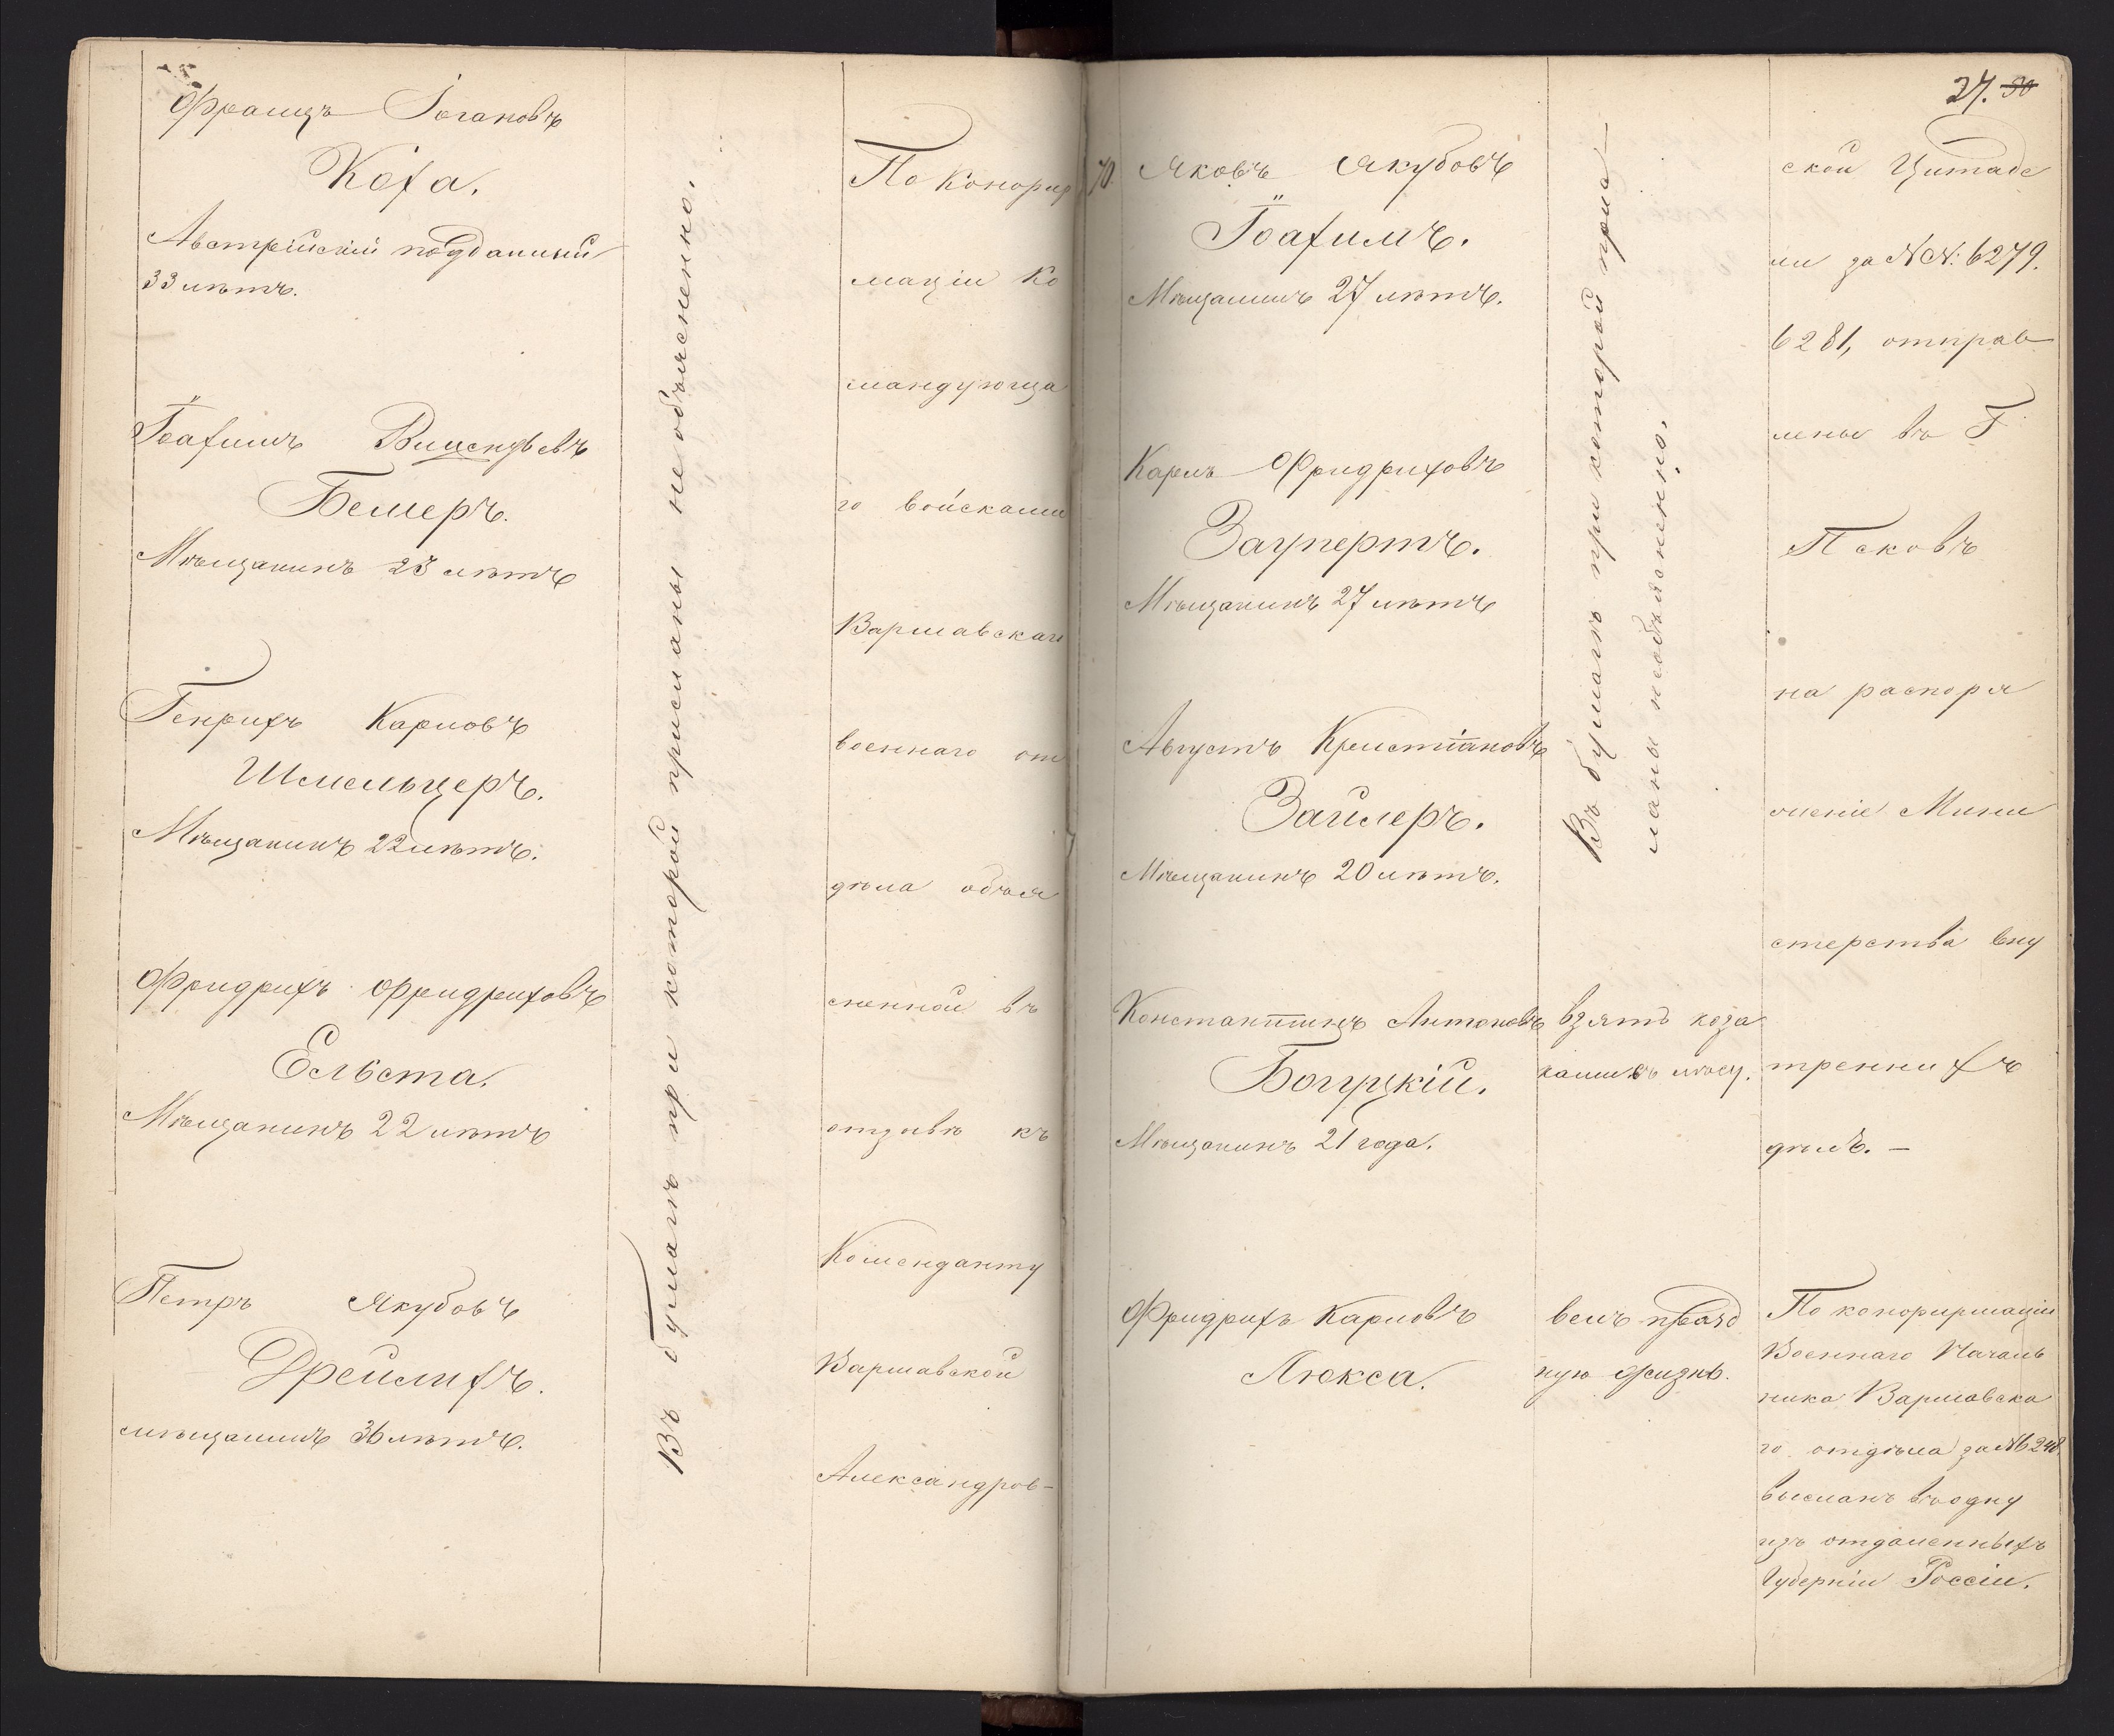 Францъ Іогановъ
Коха.
Австрійскій подданный
33 лѣтъ.
Іоахимъ Винсентьевъ
Бемеръ.
Мѣщанинъ 23 лѣтъ
Генрихъ Карловъ
Шмельцеръ.
Мѣщанинъ 22 лѣтъ.
Фридрихъ Фридриховъ
Ельста.
Мѣщанинъ 22 лѣтъ
Петръ Якубовъ
Дрейлихъ.
мѣщанинъ 36 лѣтъ.
Въ бумагѣ при которой присланы не объяснено.
По конфир
маціи Ко
мандующа
го войсками
Варшавскаго
военнаго от
дѣла объя
сненной въ
отзывѣ къ
Коменданту
Варшавской
Александров-
27. 30
70. Яковъ Якубовъ
Іоахимъ.
Мѣщанинъ 27 лѣтъ.
Карлъ Фридриховъ
Заупертъ.
Мѣщанинъ 27 лѣтъ
Августъ Кристіановъ
Зайлеръ.
Мѣщанинъ 20 лѣтъ.
Константинъ Антоновъ
Богуцкій.
Мѣщанинъ 21 года.
Фридрихъ Карловъ
Люкса.
Въ бумагѣ при которой при-
сланы необъяснено.
взятъ коза
ками въ лѣсу.
велъ празд
ную жизнь.
ской Цитаде
ли за №№: 6279.
6281, отправ
лены въ Г
Псковъ
на распоря
женіе Мини
стерства вну
треннихъ
дѣлъ. —
По конфирмаціи
Военнаго Началь
ника Варшавска
го отдѣла за № 6248
высланъ въ одну
изъ отдаленныхъ
Губерніи Россіи.